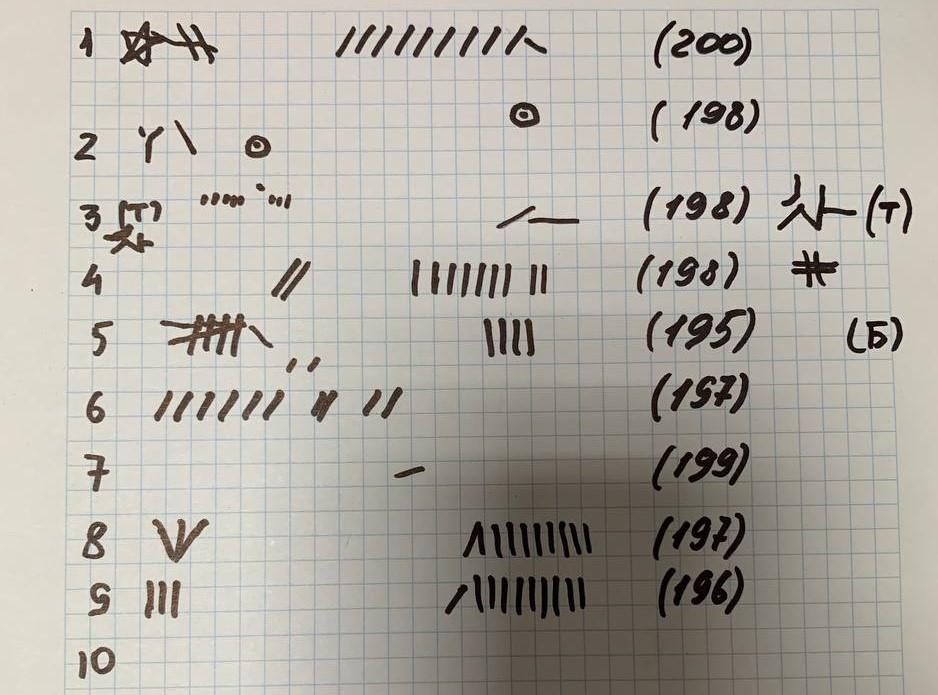 1 (200)
2 (198)
3 (T) (198) (T)
4 (198)
5 (195) (Б)
6 (197)
7 (199)
8 (197)
9 (196)
10